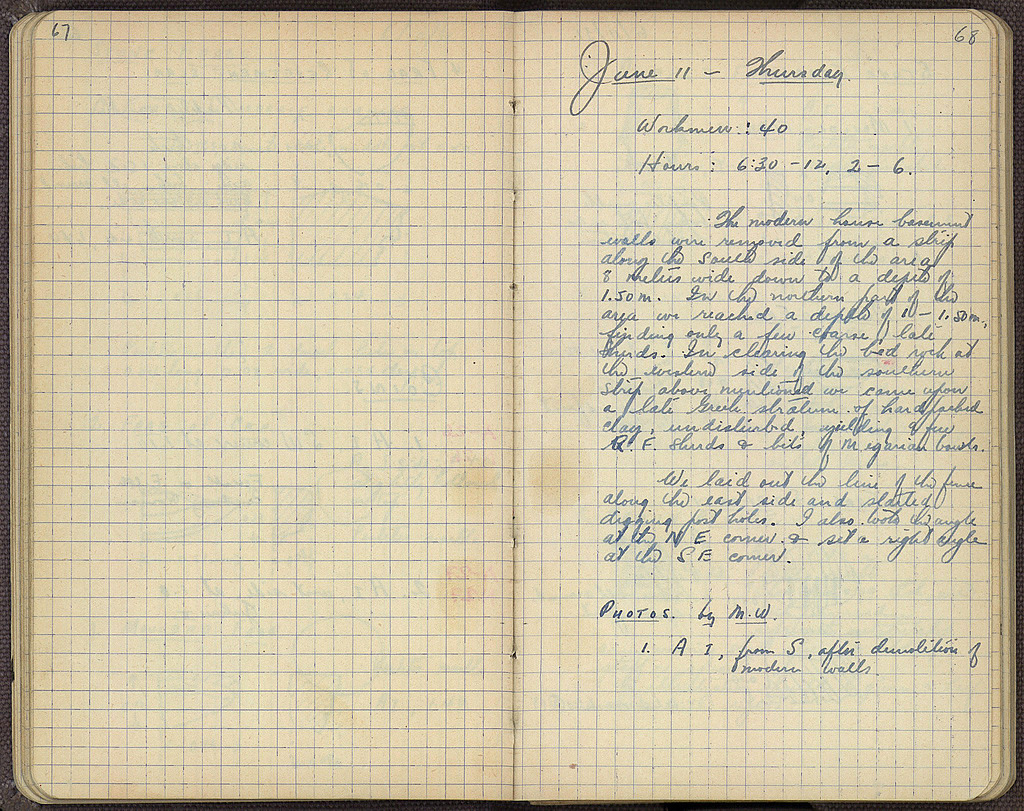 67
68
June 11 - Thursday.
Workmen : 40
Hours : 6:30 - 12, 2 - 6.
The modern house basement
walls were removed from a strip
along the south side of the area
8 meters wide down to a depth of
1.50 m. In the northern part of the
area we reached a depth of 1 - 1.50 m.,
finding only a few coarse, late
sherds. In clearing the bed rock at
the western side of the southern
strip above mentioned we came upon
a late Greek stratum of hard packed
clay, undisturbed, yielding a few
R. F. sherds & bits of Megarian bowls.
We laid out the line of the fence
along the east side and started
digging post holes. I also took the angle
at the N E corner & set a right angle
at the S E corner.
PHOTOS. by M.W.
1. A I, from S, after demolition of
modern walls.